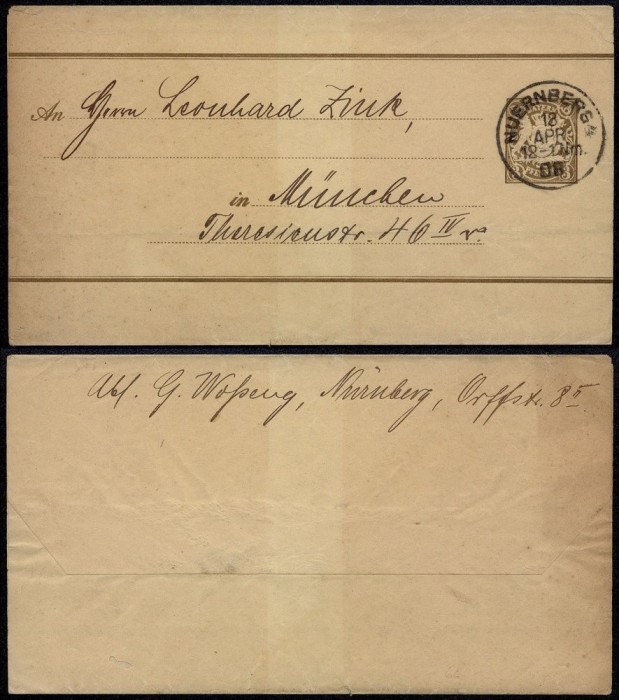 An Herrn Leonhard Zink,
in München
Theresienstr. 46 IV r.
NUERNBERG 4
18
APR
12-1 Nm.
08
Abs. G. Woßeng, Nürnberg, Orffstr. 8 II